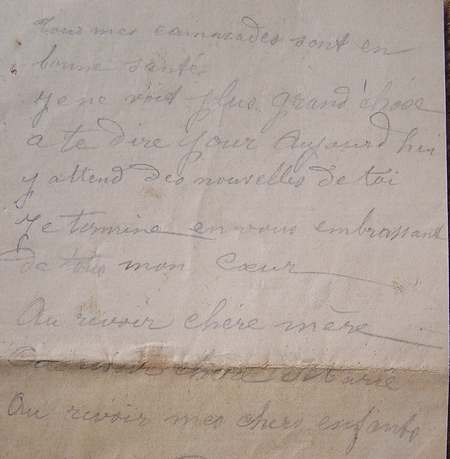 tous mes camarades sont en
bonne santé
je ne voit plus grand chose
a te dire pour Aujourd hui
j attend des nouvelles de toi
Je termine en vous embrassant
de tous mon Cœur
Au revoir chère mère
Au revoir chère Marie
Au revoir mes chers enfants